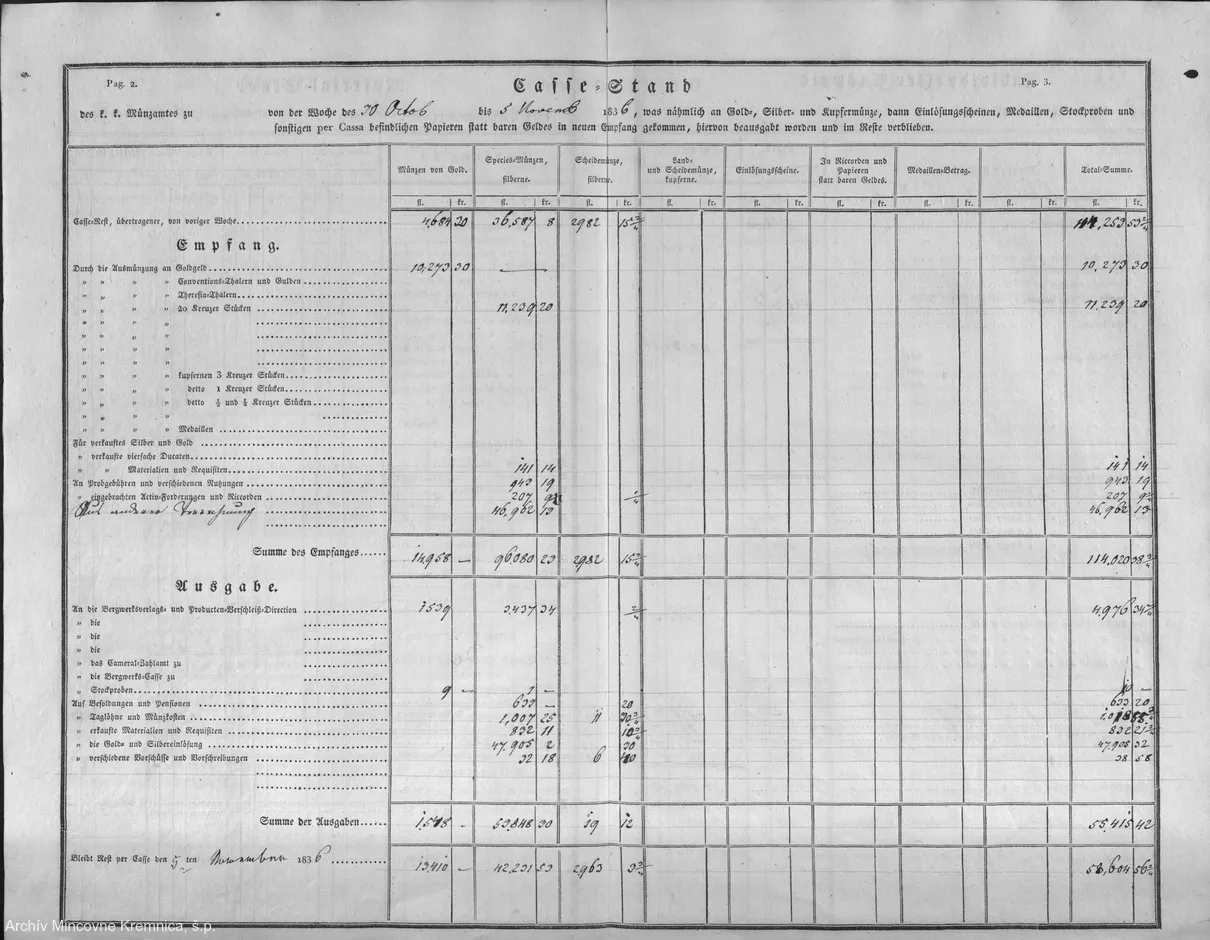 Pag. 2.
Casse-Stand
Pag. 3.
des k. k. Münzamtes zu von der Woche des 30 Octob bis 5 Novemb 1836, was nähmlich an Gold-, Silber- und Kupfermünze, dann Einlösungsscheinen, Medaillen, Stockproben und
sonstigen per Cassa befindlichen Papieren statt baren Geldes in neuen Empfang gekommen, hiervon beausgabt worden und im Reste verblieben.
Münzen von Gold. Species-Münzen, silberne. Scheidemünze, silberne. Land- und Scheidemünze, kupferne. Einlösungsscheine. In Riccorden und Papieren statt baren Geldes. Medaillen-Betrag. Total-Summe.
fl. kr. fl. kr. fl. kr. fl. kr. fl. kr. fl. kr. fl. kr. fl. kr. fl. kr.
Casse-Rest, übertragener, von voriger Woche 4,684 30 36,587 8 2982 15 2/4 44,253 53 2/4
Empfang.
Durch die Ausmünzung an Goldgeld 10,273 30 — 10,273 30
" " " " Conventions-Thalern und Gulden
" " " " Theresia-Thalern
" " " " 20 Kreuzer Stücken 11,239 20 11,239 20
" " " "
" " " "
" " " "
" " " "
" " " " kupfernen 3 Kreuzer Stücken
" " " " detto 1 Kreuzer Stücken
" " " " detto ½ und ¼ Kreuzer Stücken
" " "
" " " " Medaillen
Für verkauftes Silber und Gold
" verkaufte vierfache Ducaten
" " Materialien und Requisiten 141 14 141 14
An Probgebühren und verschiedenen Nutzungen 943 19 943 19
" eingebrachten Activ-Forderungen und Riccorden 207 207
Aus anderer Verrechnung 46,962 13 46,962 13
Summe des Empfanges 14,958 — 96080 23 2982 15 3/4 114,020 38 3/4
Ausgabe.
An die Bergwerksverlags- und Producten-Verschleiß-Direction 1539 3,437 34 4,976 34
" die
" die
" die
" das Cameral-Zahlamt zu
" die Bergwerks-Casse zu
" Stockproben 9 — 1 — 10 —
Auf Besoldungen und Pensionen 633 — 20 633 20
" Taglöhne und Münzkosten 1,007 25 11
" erkaufte Materialien und Requisiten 832 11 832 21
" die Gold- und Silbereinlösung 47,905 2 30 47,905 32
" verschiedene Vorschüsse und Vorschreibungen 32 18 6 40 38 58
Summe der Ausgaben 1,548 - 53,848 30 19 12 55,415 42
Bleibt Rest per Casse den 5 ten November 1836 13,410 — 42,231 53 2963 3 3/4 58,604 56 3/4
Archív Mincovne Kremnica, š.p.